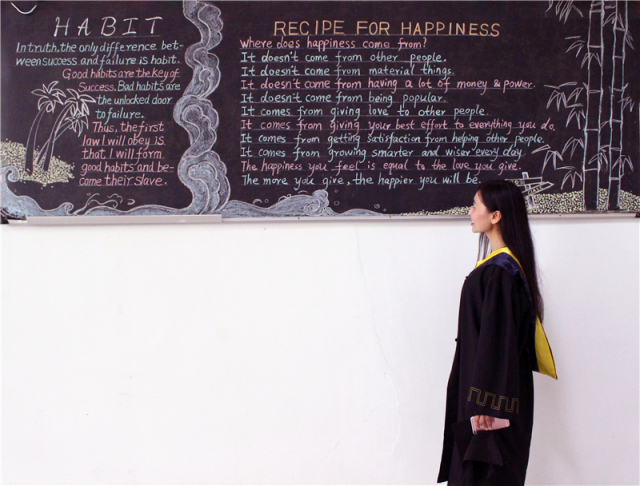 HABIT
In truth, the only difference bet-
ween success and failure is habit.
Good habits are the key of
Success. Bad habits are
the unlocked door
to failure.
Thus, the first
law I will obey is
that I will form
good habits and be-
come their slave.
RECIPE FOR HAPPINESS
Where does happiness come from?
It doesn't come from other people.
It doesn't come from material things.
It doesn't come from having a lot of money & power.
It doesn't come from being popular.
It comes from giving love to other people.
It comes from giving your best effort to everything you do.
It comes from getting satisfaction from helping other people.
It comes from growing smarter and wiser every day.
The happiness you feel is equal to the love you give.
The more you give, the happier you will be.